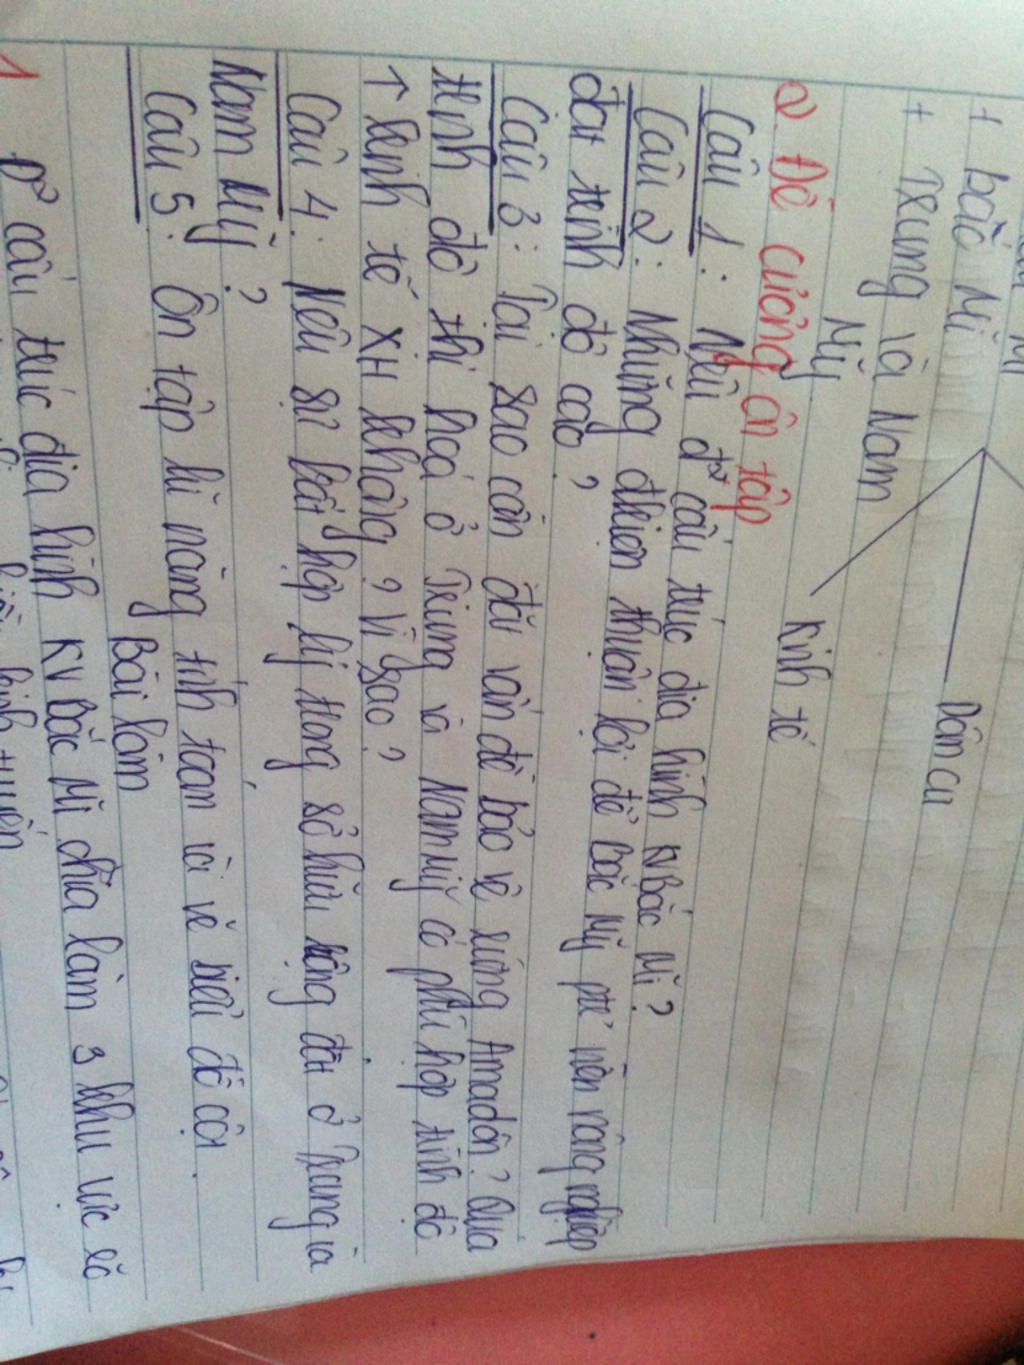 + Bắc Mĩ
+ Trung và Nam
Mỹ
Dân cư
Kinh tế
2. Đề cương ôn tập
Câu 1: Nêu đ² cấu trúc địa hình KV Bắc Mĩ?
Câu 2: Những điều kiện thuận lợi để Bắc Mỹ ptể nền nông nghiệp
đạt trình độ cao?
Câu 3: Tại sao cần đặt vấn đề bảo vệ rừng Amadôn? Qua
trình đô thị hoá ở Trung và Nam Mỹ có phù hợp trình độ
↑ kinh tế XH không? Vì sao?
Câu 4: Nêu sự bất hợp lý trong sở hữu ruộng đất ở Trung và
Nam Mỹ?
Câu 5: Ôn tập kĩ năng tính toán và vẽ biểu đồ cột.
Bài làm
1 Đ² cấu trúc địa hình KV Bắc Mĩ chia làm 3 khu vực rõ
kinh tuyến